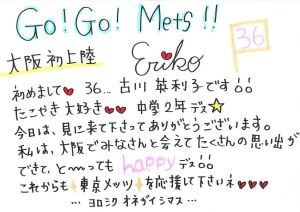 Go! Go! Mets!!
大阪初上陸
Eriko
36
初めまして♥36…古川英利子です♪♪
たこやき大好き♥♥中学2年デス☆
今日は、見に来て下さってありがとうございます。
私は、大阪でみなさんと会えてたくさんの思い出が
できて、と〜ってもhappyデス♪♪
これからも✨東京メッツ✨を応援して下さいネ♥♥♥
…ヨロシクオネガイシマス…